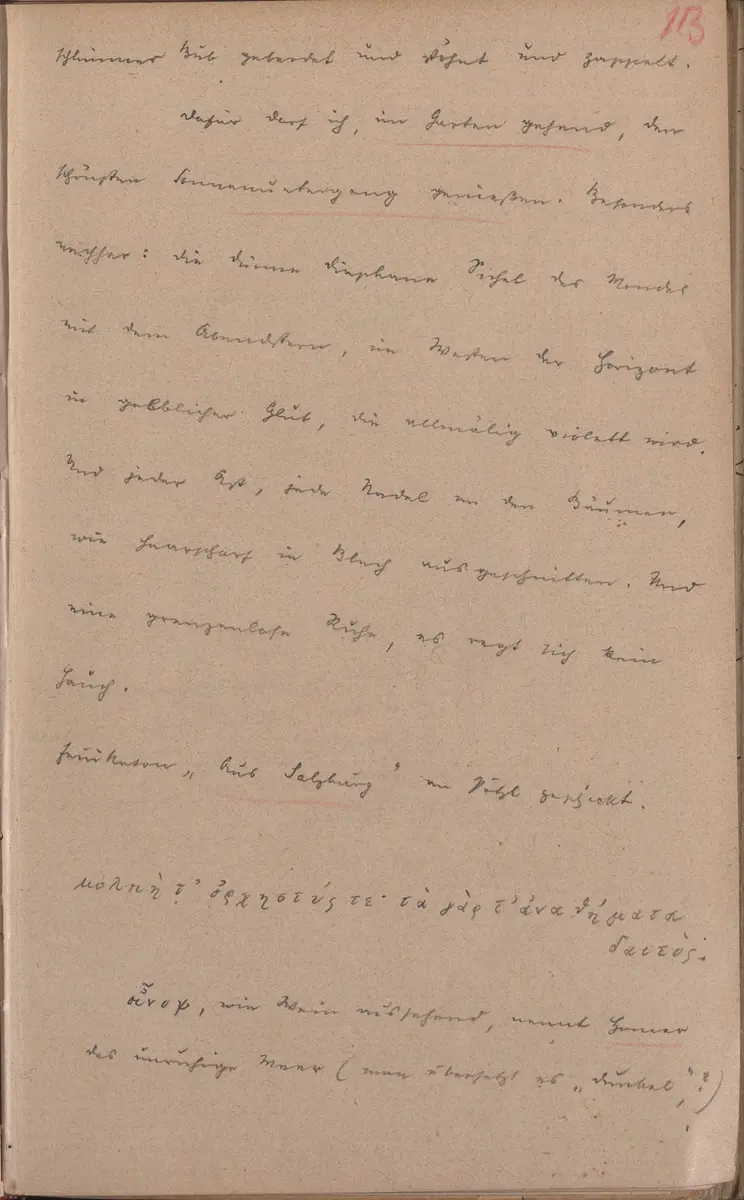 113
schlimmer Bub geberdet und stöhnt und zappelt.
Dafür darf ich, im Garten gehend, den
schönsten Sonnenuntergang genießen. Besonders
die dünne diaphane Sichel des Mondes
mit dem Abendstern, im Westen der Horizont
in gelblicher Glut, die allmälig violett wird.
Und jeder Ast, jede Nadel an den Bäumen,
wie haarscharf in Blech ausgeschnitten. Und
eine grenzenlose Ruhe, es regt sich kein
Hauch.
Feuilleton „Aus Salzburg“ an Pötzl geschickt.
μολπή τ’ ὀρχηστύς τε· τὰ γάρ τ’ ἀναθήματα
δαιτός.
οἶνοψ, wie Wein aussehend, nennt Homer
das unruhige Meer (man übersetzt es „dunkel“?)